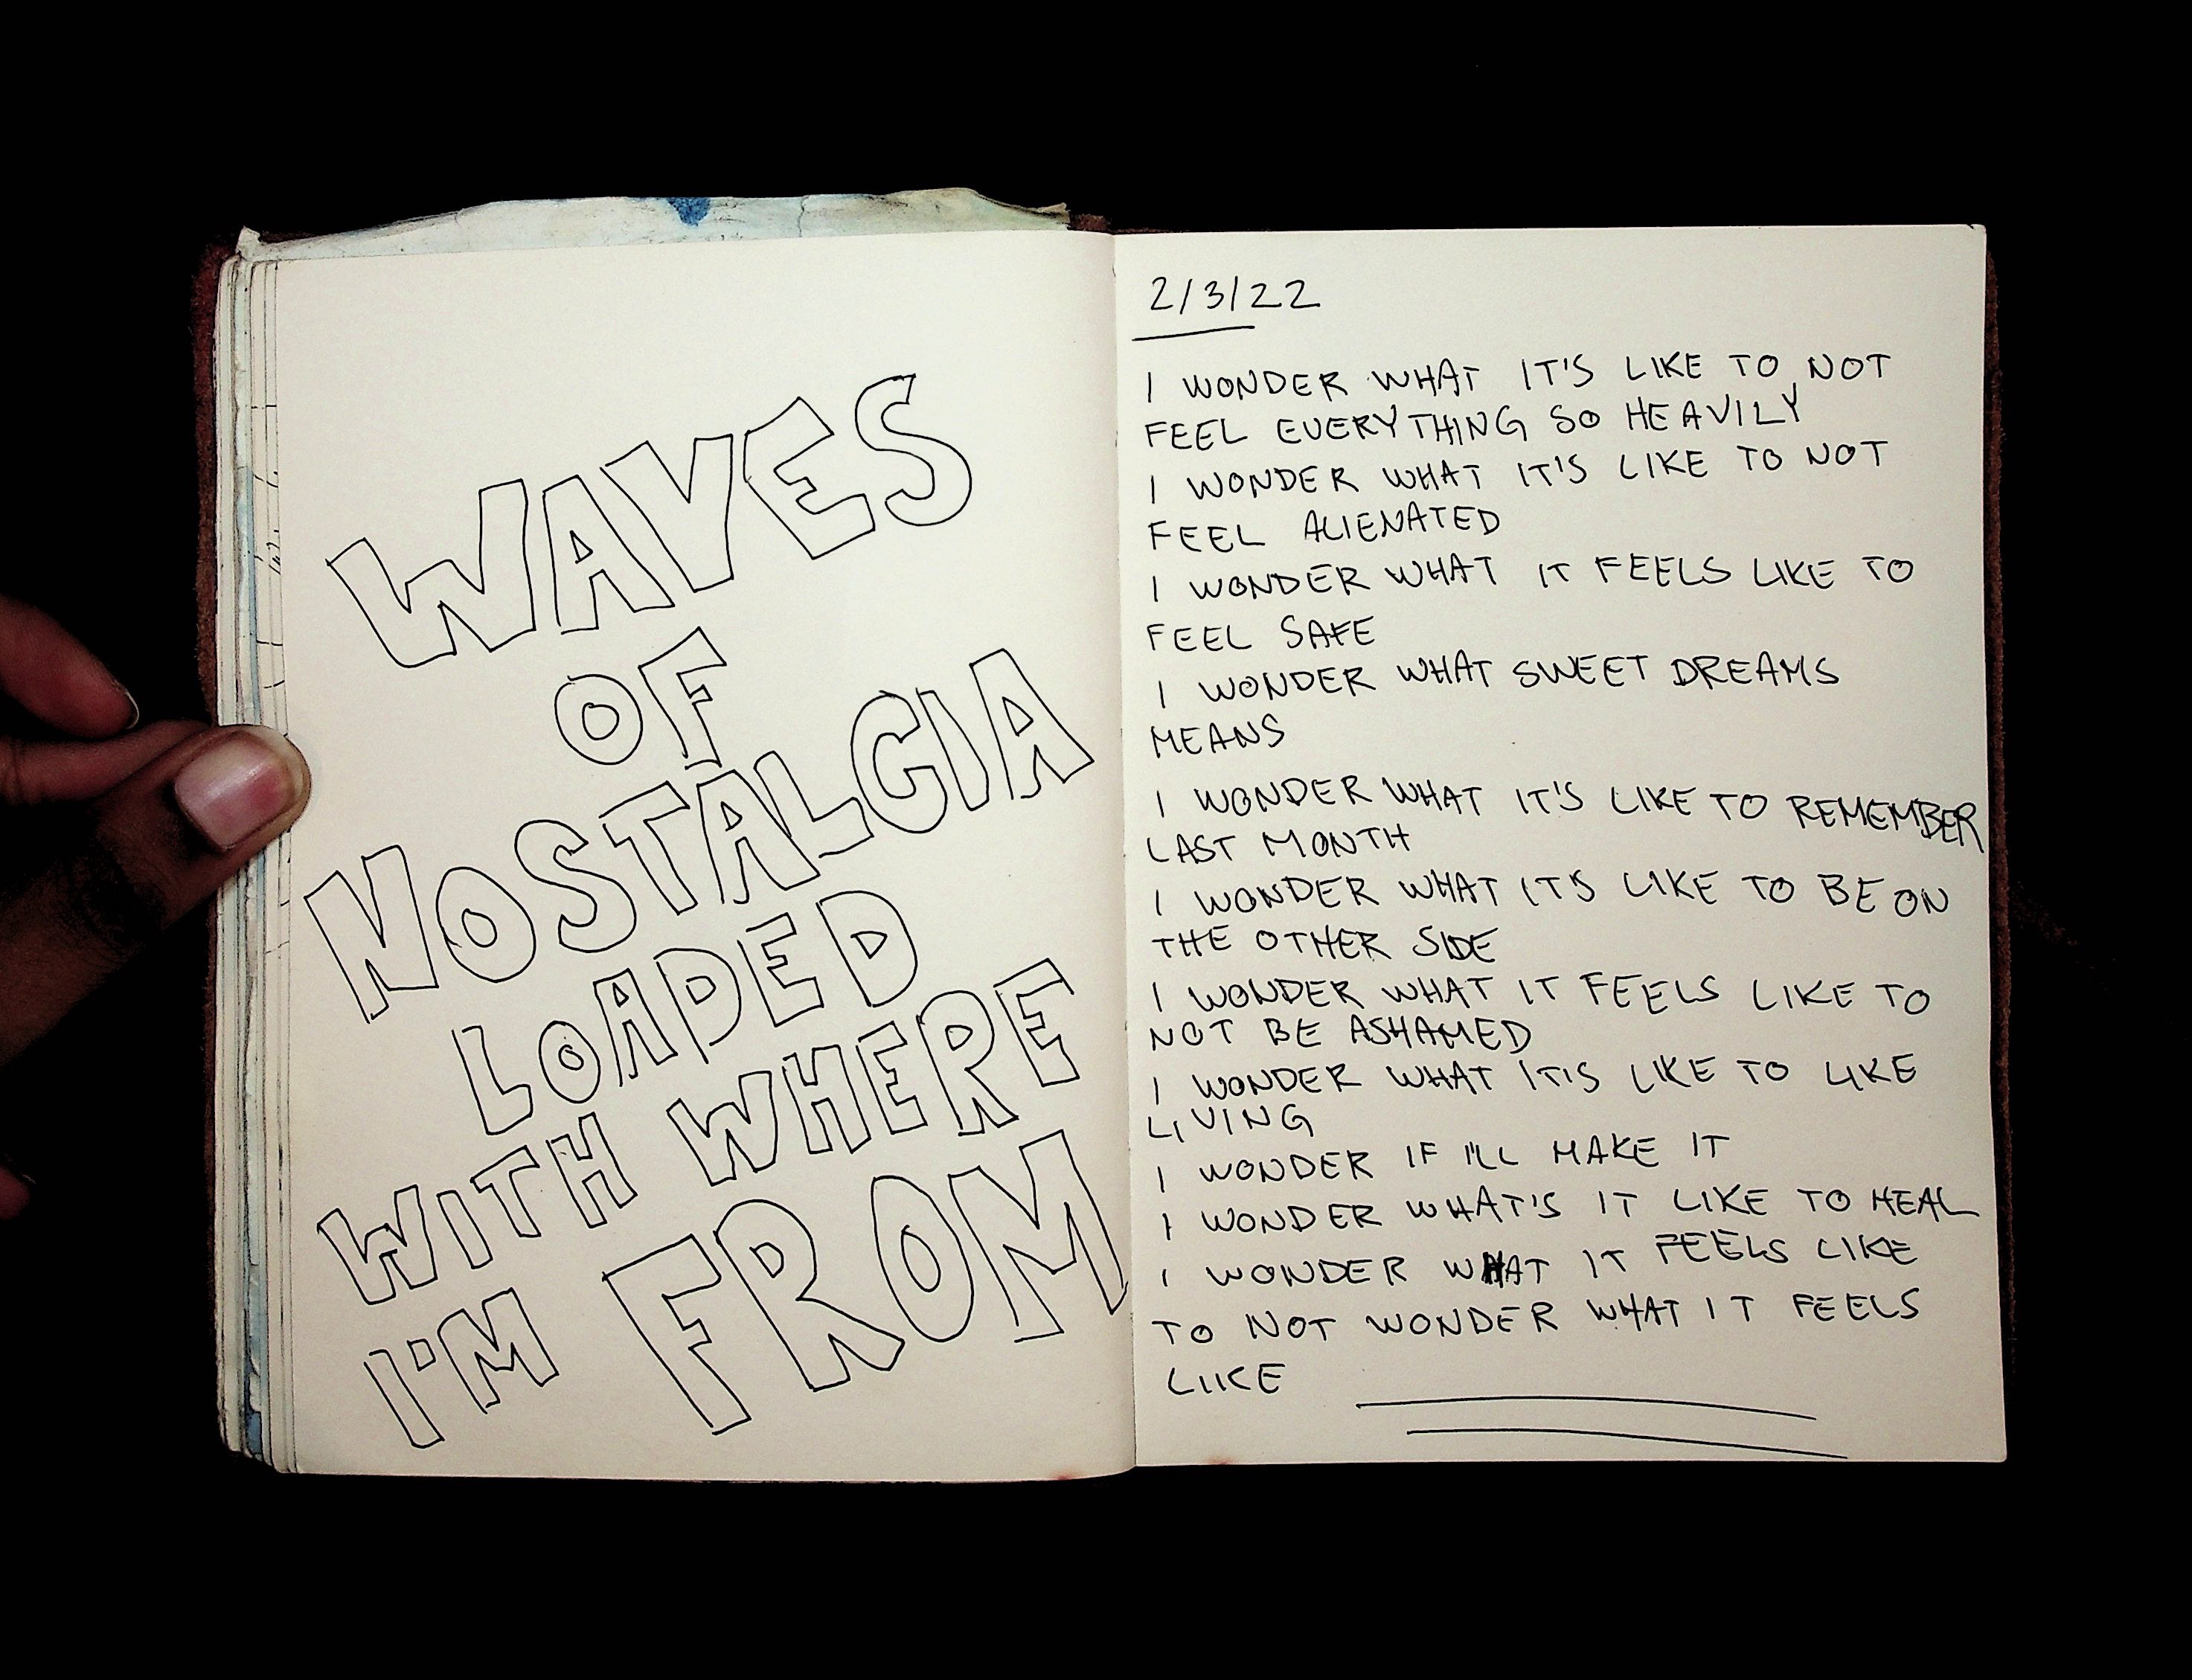 WAVES
OF
NOSTALGIA
LOADED
WITH WHERE
I'M FROM
2/3/22
I WONDER WHAT IT'S LIKE TO NOT
FEEL EVERYTHING SO HEAVILY
I WONDER WHAT IT'S LIKE TO NOT
FEEL ALIENATED
I WONDER WHAT IT FEELS LIKE TO
FEEL SAFE
I WONDER WHAT SWEET DREAMS
MEANS
I WONDER WHAT IT'S LIKE TO REMEMBER
LAST MONTH
I WONDER WHAT IT'S LIKE TO BE ON
THE OTHER SIDE
I WONDER WHAT IT FEELS LIKE TO
NOT BE ASHAMED
I WONDER WHAT IT'S LIKE TO LIKE
LIVING
I WONDER IF I'LL MAKE IT
I WONDER WHAT'S IT LIKE TO HEAL
I WONDER WHAT IT FEELS LIKE
TO NOT WONDER WHAT IT FEELS
LIKE